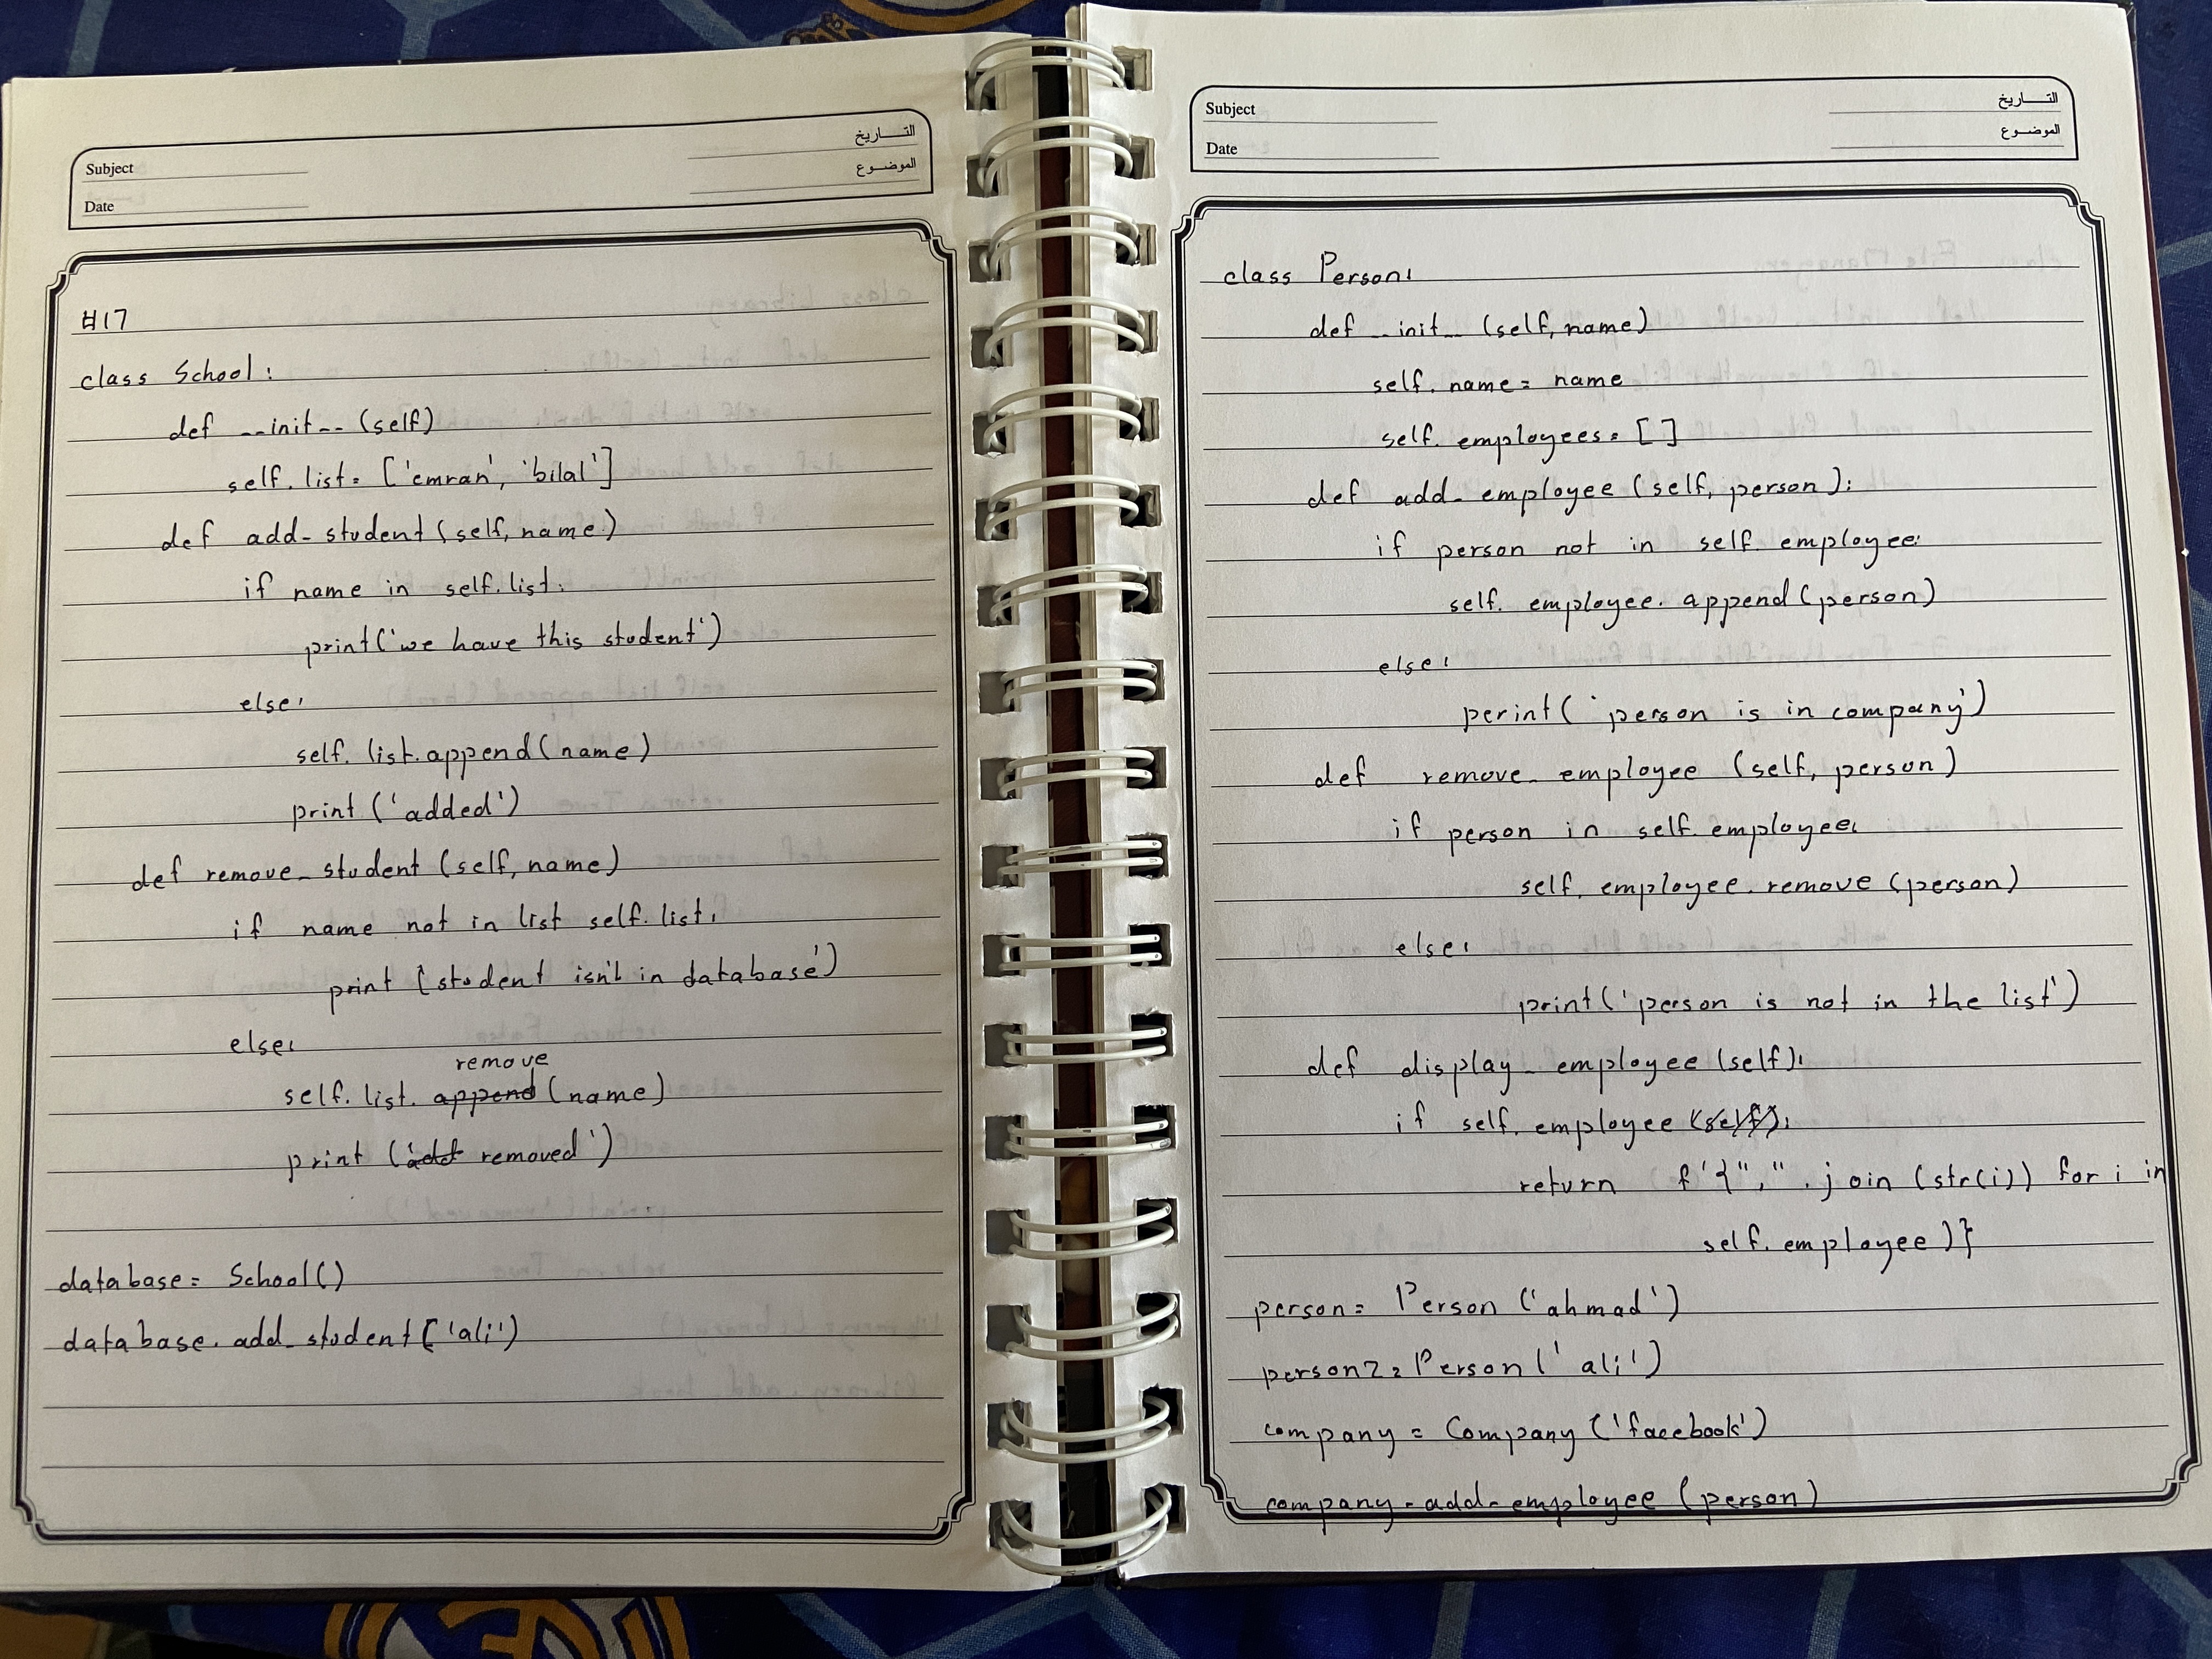 Subject
Date
التـــاريخ
الموضـــوع
#17
class School:
def __init__(self)
self.list = ['emran', 'bilal']
def add_student(self, name)
if name in self.list:
print('we have this student')
else:
self.list.append(name)
print('added')
def remove_student(self, name)
if name not in list self.list:
print(student isn't in database')
else:
remove
self.list.append(name)
print(' removed')
database = School()
database.add_student('ali')
Subject
Date
التـــاريخ
الموضـــوع
class Person:
def __init__(self, name)
self.name = name
self.employees = []
def add_employee(self, person):
if person not in self employee:
self.employee.append(person)
else:
perint('person is in company')
def remove_employee (self, person)
if person in self.employee:
self.employee.remove(person)
else:
print('person is not in the list')
def display_employee(self):
if self.employee(self):
return f'{", ".join(str(i)) for i in
self.employee)}
person = Person('ahmad')
person2 = Person('ali')
company = Company('facebook')
company.add_employee(person)